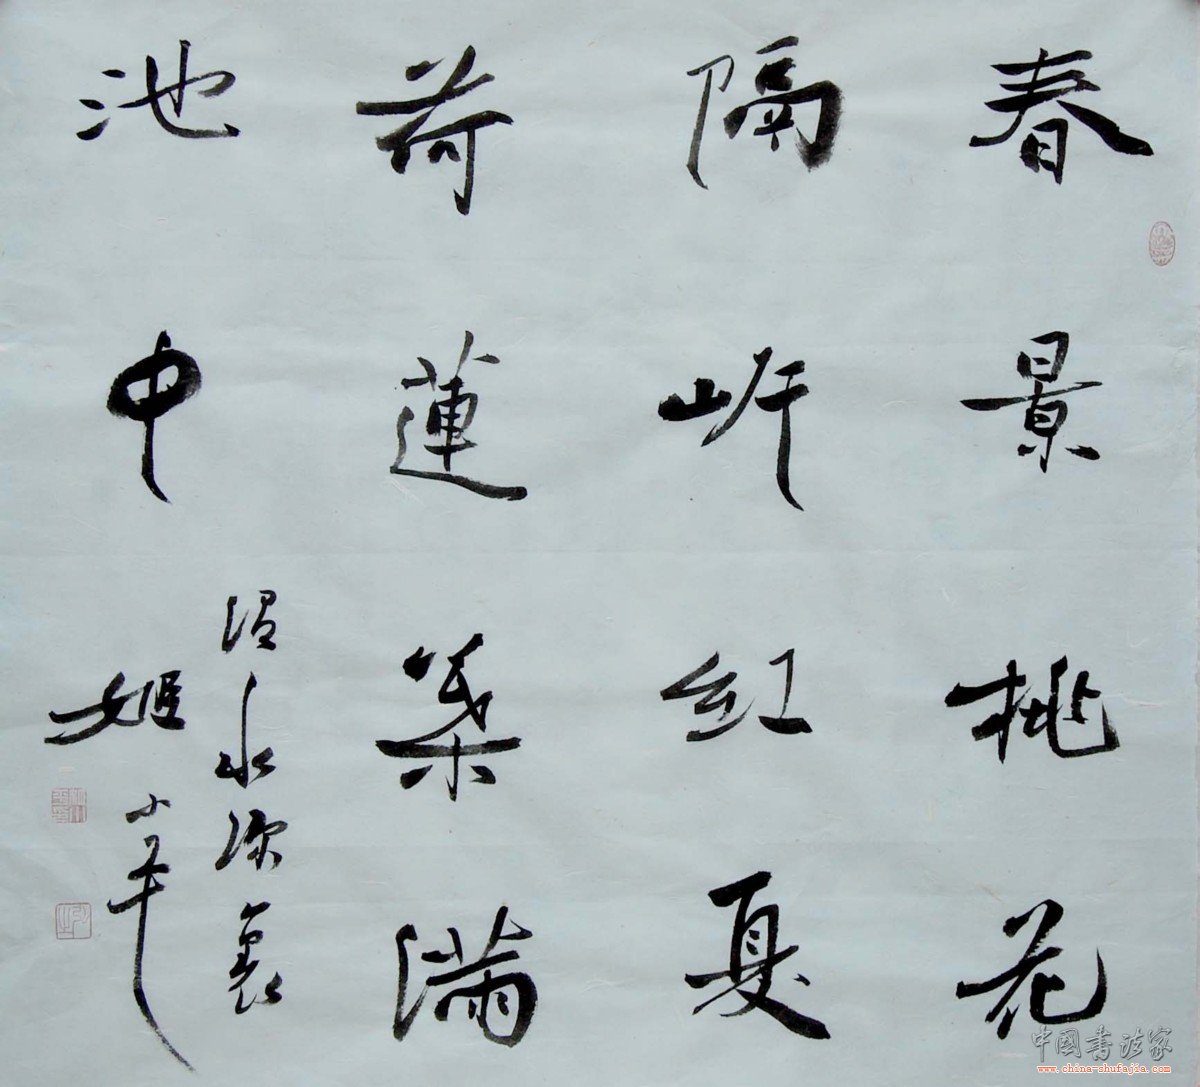 春景桃花
隔岍红夏
荷蓮葉满
池中
渭水深裏
姬小军
中国书法家
www.china-shufajia.com